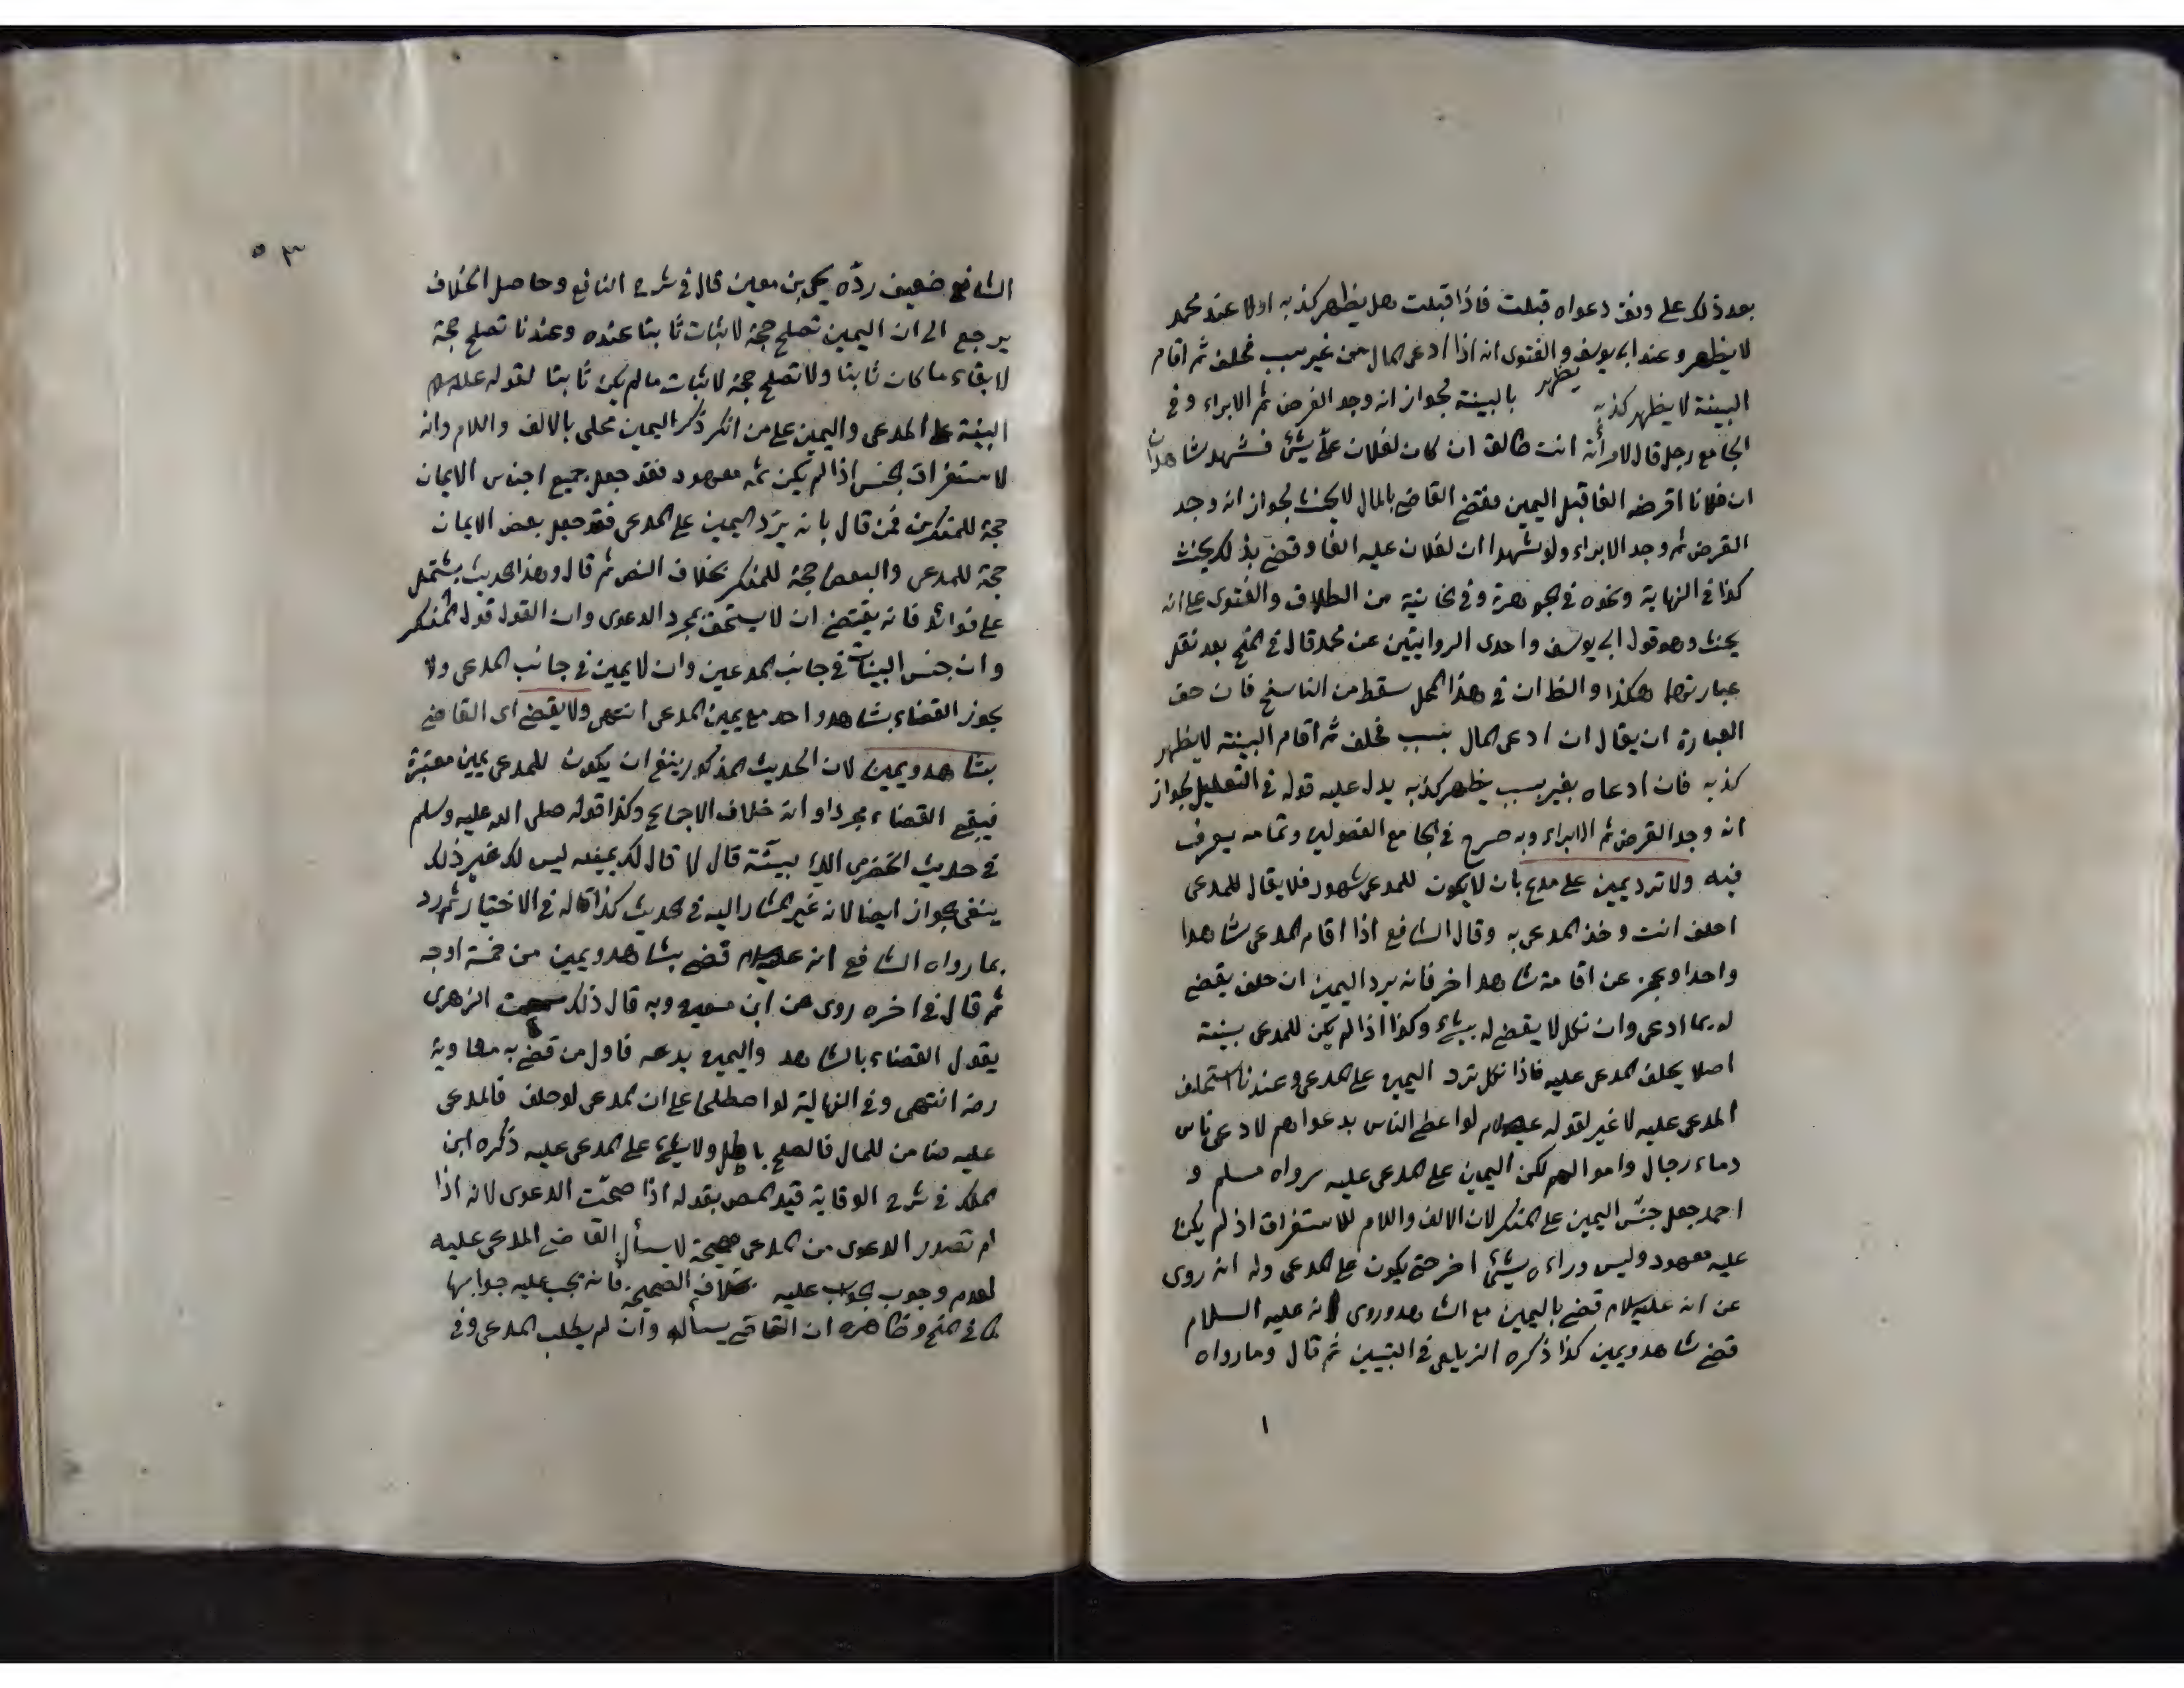 بعد ذلك على وفق دعواه قبلت فاذا قبلت هل يظهر كذبه اولا عند محمد
لا يظهر وعند ابى يوسف والفتوى انه اذا ادعى المال من غير سبب فحلف ثم اقام
يظهر
البينة لا يظهر كذبه بالبينة لجواز انه وجد القرض ثم الابراء وفى
الجامع رجل قال لامرأته انت طالق ان كان لفلان علىّ شئ فشهد شاهدان
ان فلانا اقرضه الفا قبل اليمين فقضى القاضى بالمال لا يحنث لجواز انه وجد
القرض ثم وجد الابراء ولو شهدا ان لفلان عليه الفا وقضى بذلك يحنث
كذا فى النهاية ونحوه فى الجوهرة وفى الخانية من الطلاق والفتوى على انه
يحنث وهو قول ابى يوسف واحدى الروايتين عن محمد قال فى المنح بعد نقل
عبارتهما هكذا والظ ان فى هذا المحل سقط من الناسخ فان حق
العبارة ان يقال ان ادعى المال بسبب فحلف ثم اقام البينة لا يظهر
كذبه فان ادعاه بغير سبب يظهر كذبه يدل عليه قوله فى التعليل لجواز
انه وجد القرض ثم الابراء وبه صرح فى الجامع الفصولين وتمامه يعرف
فيه ولا ترد يمين على مدع بان لا يكون للمدعى شهود فلا يقال للمدعى
احلف انت وخذ المدعى به وقال الشافع اذا اقام المدعى شاهدا
واحدا وعجز عن اقامة شاهد اخر فانه يرد اليمين ان حلف يقضى
له بما ادعى وان نكل لا يقضى له بشئ وكذا اذا لم يكن للمدعى بينة
اصلا يحلف المدعى عليه فاذا نكل ترد اليمين على المدعى وعندنا استحلف
المدعى عليه لا غير لقوله عليه السلام لو اعطى الناس بدعواهم لادعى ناس
دماء رجال واموالهم لكن اليمين على المدعى عليه رواه مسلم و
احمد جعل جنس اليمين على المنكر لان الالف واللام للاستغراق اذ لم يكن
عليه معهود وليس وراءه شئ اخر حتى يكون على المدعى وله انه روى
عن انه عليه السلام قضى باليمين مع الشاهد وروى انه عليه السلام
قضى شاهد ويمين كذا ذكره الزيلعى فى التبيين ثم قال وما رواه
١
٥٣
الشافع ضعيف ردّه يحيى بن معين قال فى شرح النافع وحاصل الخلاف
يرجع الى ان اليمين تصلح حجة لاثبات ثابتا عنده وعندنا تصلح حجة
لابقاء ما كان ثابتا ولا تصلح حجة لاثبات ما لم يكن ثابتا لقوله عليه السلام
البينة على المدعى واليمين على من انكر ذكر اليمين محلى بالالف واللام وانه
لاستغراق الجنس اذا لم يكن ثمه معهود فقد جعل جميع اجناس الايمان
حجة للمنكرين فمن قال بانه يرد اليمين على المدعى فقد جعل بعض الايمان
حجة للمدعى والبعض حجة للمنكر بخلاف النص ثم قال وهذا الحديث يشتمل
على فوائد فانه يقتضى ان لا يستحق بمجرد الدعوى وان القول قول المنكر
وان جنس البينات فى جانب المدعين وان لا يمين فى جانب المدعى ولا
يجوز القضاء بشاهد واحد مع يمين المدعى انتهى ولا يقضى اى القاضى
بشاهد ويمين لان الحديث المذكور ينفى ان يكون للمدعى يمين معتبرة
فيبقى القضاء مجردا وانه خلاف الاجماع وكذا قوله صلى الله عليه وسلم
فى حديث الحضرمى الك بينة قال لا قال لك يمينه ليس لك غير ذلك
ينفى الجواز ايضا لانه غير المشار اليه فى الحديث كذا قاله فى الاختيار ثم رد
بما رواه الشافع انه عليه السلام قضى بشاهد ويمين من خمسة اوجه
ثم قال فى اخره روى عن ابن وبه قال ذلك الزهرى
يقول القضاء بالشاهد واليمين بدعه فاول من قضى به معاوية
رضه انتهى وفى النهاية لو اصطلحا على ان المدعى لو حلف فالمدعى
عليه ضامن للمال فالصلح باطل ولا شئ على المدعى عليه ذكره ابن
الملك فى شرح الوقاية قيد المص بقوله اذا صحّت الدعوى لانه اذا
لم تصدر الدعوى من المدعى صحيحة لا يسأل القاضى المدعى عليه
لعدم وجوب الجواب عليه بخلاف الصحيحة فانه يجب عليه جوابها
كما فى المنح وظاهره ان القاضى يسأله وان لم يطلب المدعى وفى